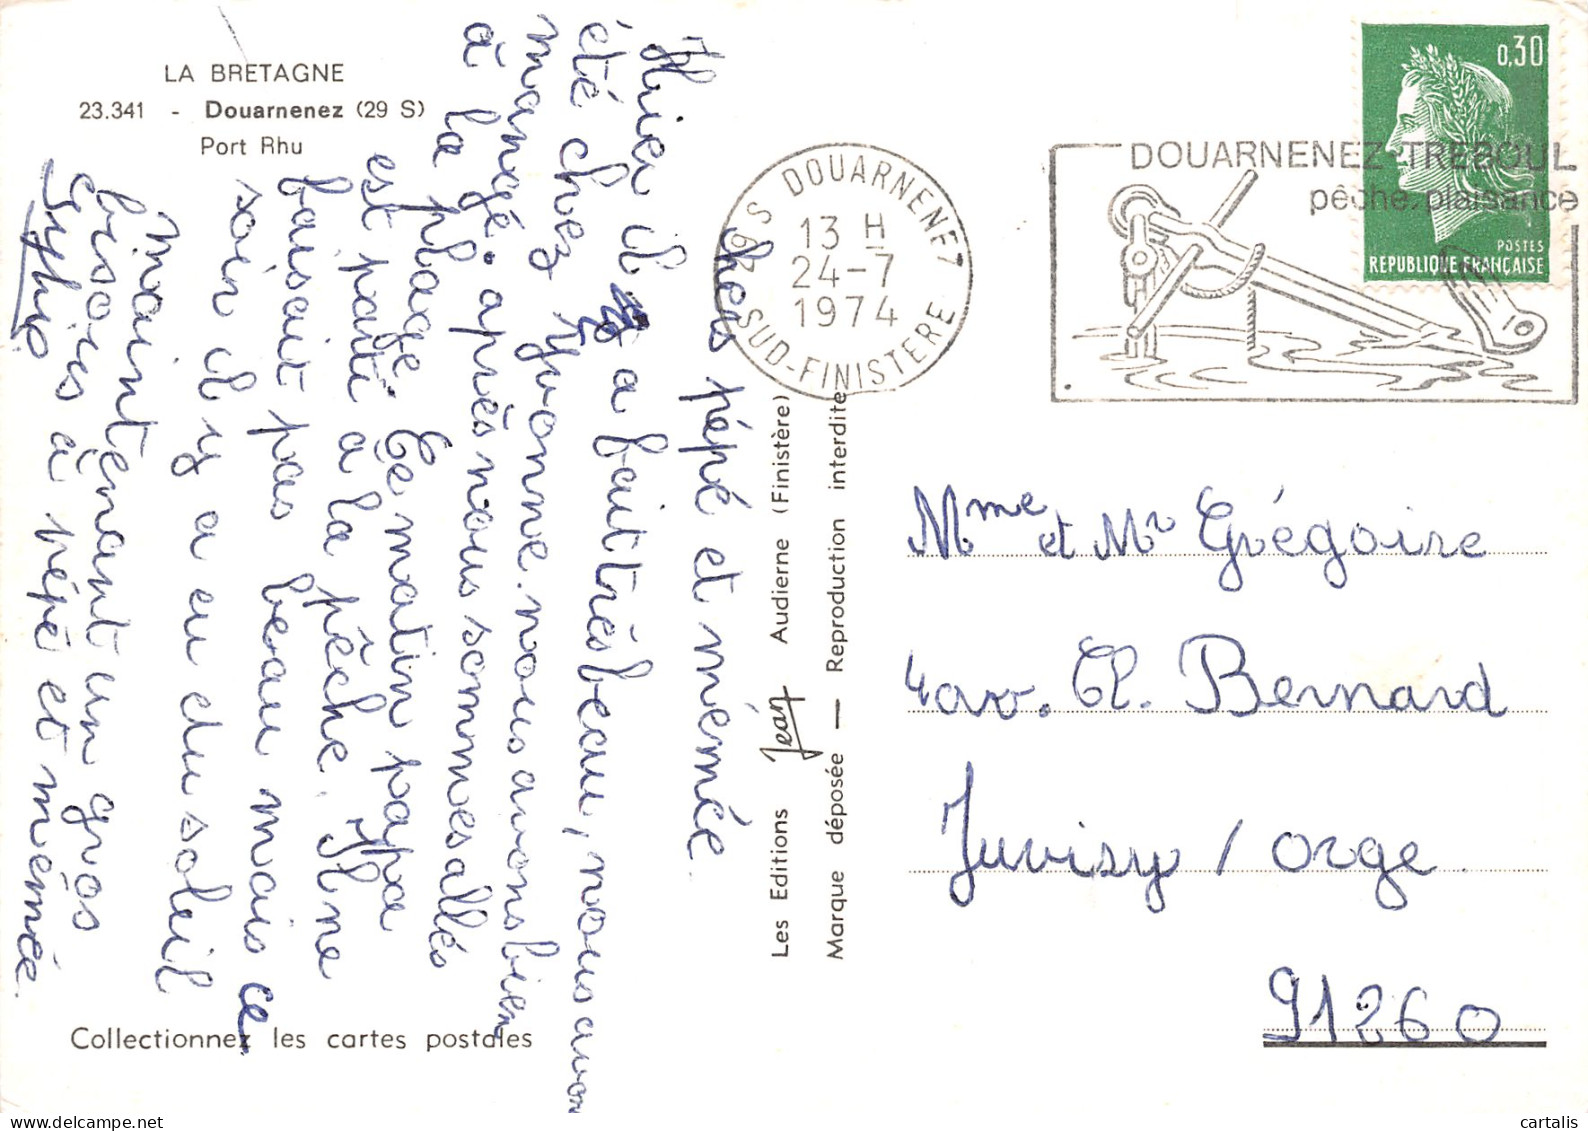 LA BRETAGNE
23.341 - Douarnenez (29 S)
Port Rhu
chers pépé et mémée
Hier il y a fait très beau, nous avons
été chez Yvonne. nous avons bien
mangé. après nous sommes allés
à la plage. Ce matin papa
est parti a la pêche. Il ne
faisait pas beau mais ce
soir il y a eu du soleil
Maintenant un gros
bisous à pépé et mémée.
Sylvie
Collectionnez les cartes postales
Les Editions Jean Audierne (Finistère)
Marque déposée — Reproduction interdite
29 S DOUARNENEZ
13 H
24-7
1974
SUD-FINISTERE
DOUARNENEZ-TREBOUL
pêche, plaisance
0,30
POSTES
REPUBLIQUE FRANÇAISE
Mme et Mr Grégoire
4 av. Cl. Bernard
Juvisy / Orge
91260
cartalis